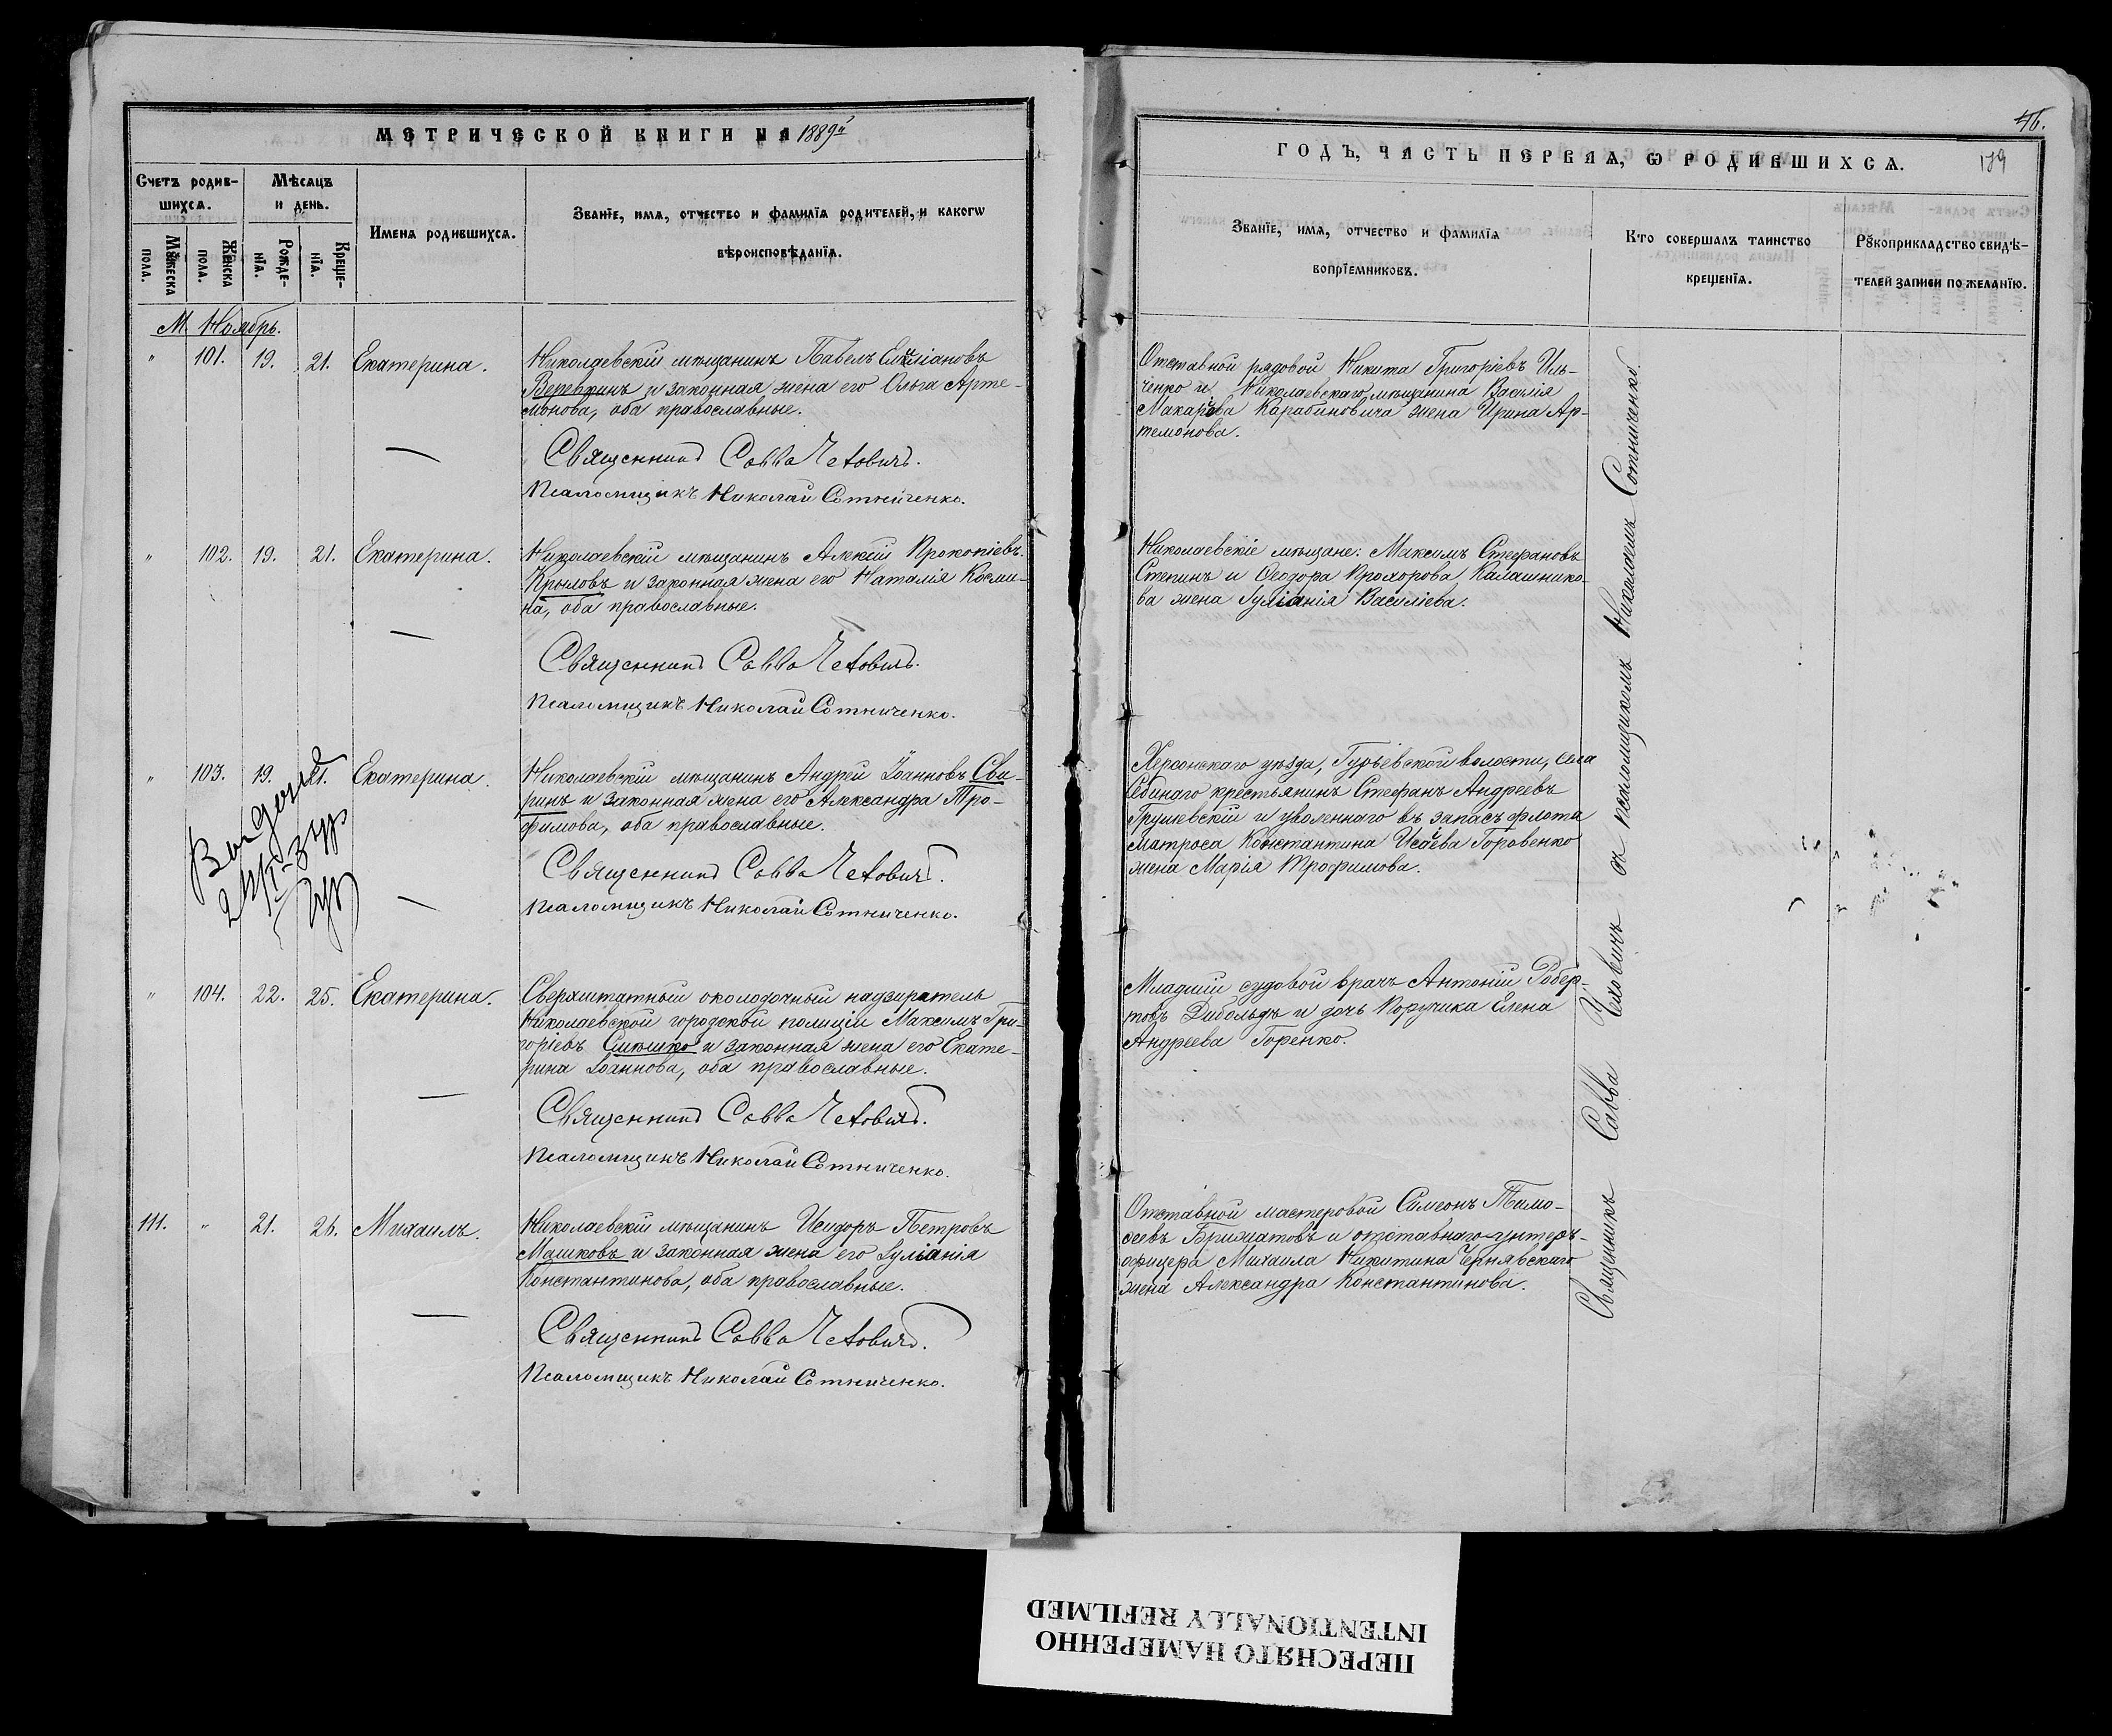 МЕТРИЧЕСКОЙ КНИГИ НА 1889й
Счетъ родив-
шихся.
Мѣсяцъ
и день.
Мужеска
пола.
Женска
пола.
Рожде-
нїя.
Креще-
нїя.
Имена родившихся.
Званїе, имя, отчество и фамилїя родителей, и какогѡ
вѣроисповѣданїя.
М. Ноябрь.
" 101. 19. 21. Екатерина.
Николаевскій мѣщанинъ Павелъ Емиліановъ
Веревкинъ и законная жена его Ольга Арте-
монова, оба православные.
Священникъ Савва Чехович.
Псаломщикъ Николай Сотниченко.
" 102. 19. 21. Екатерина.
Николаевскій мѣщанинъ Алексій Прокопіевъ
Крыловъ и законная жена его Наталія Косми-
на, оба православные.
Священникъ Савва Чехович.
Псаломщикъ Николай Сотниченко.
" 103. 19. 21. Екатерина.
Николаевскій мѣщанинъ Андрей Іоанновъ Сви-
ринъ и законная жена его Александра Тро-
фимова, оба православные.
Священникъ Савва Чехович.
Псаломщикъ Николай Сотниченко.
" 104. 22. 25. Екатерина.
Сверхштатный околодочный надзиратель
Николаевской городской полиціи Максимъ Гри-
горіевъ Смѣшко и законная жена его Екате-
рина Іоаннова, оба православные.
Священникъ Савва Чехович.
Псаломщикъ Николай Сотниченко.
111. " 21. 26. Михаилъ.
Николаевскій мѣщанинъ Исидоръ Петровъ
Машковъ и законная жена его Іуліанія
Константинова, оба православные.
Священникъ Савва Чехович.
Псаломщикъ Николай Сотниченко.
46.
ГОДЪ, ЧАСТЬ ПЕРВАЯ, Ѡ РОДИВШИХСЯ.
139
Званїе, имя, отчество и фамилїя
воспрїемниковъ.
Кто совершалъ таинство
крещенїя.
Рукоприкладство свидѣ-
телей записи по желанїю.
Отставной рядовой Никита Григоріевъ Иль-
ченко и Николаевскаго мѣщанина Василія
Макаріева Карабиновича жена Ирина Ар-
темонова.
Николаевскіе мѣщане: Максимъ Стефановъ
Степинъ и Ѳеодора Прохорова Калашнико-
ва жена Іуліанія Василіева.
Херсонскаго уѣзда, Гурьевской волости, села
Себинаго крестьянинъ Стефанъ Андреевъ
Грушевскій и уволеннаго въ запасъ флота
матроса Константина Исаева Горовенко
жена Марія Трофимова.
Младшій судовой врачъ Антоній Робер-
товъ Дибольдъ и дочь Поручика Елена
Андреева Горенко.
Отставной мастеровой Симеонъ Тимо-
ѳеевъ Брилліатовъ и отставнаго унтеръ-
офицера Михаила Никитина Чернявскаго
жена Александра Константинова.
Священникъ Савва Чеховичъ съ псаломщикомъ Николаемъ Сотниченко.
ПЕРЕСНЯТО НАМЕРЕННО
INTENTIONALLY REFILMED